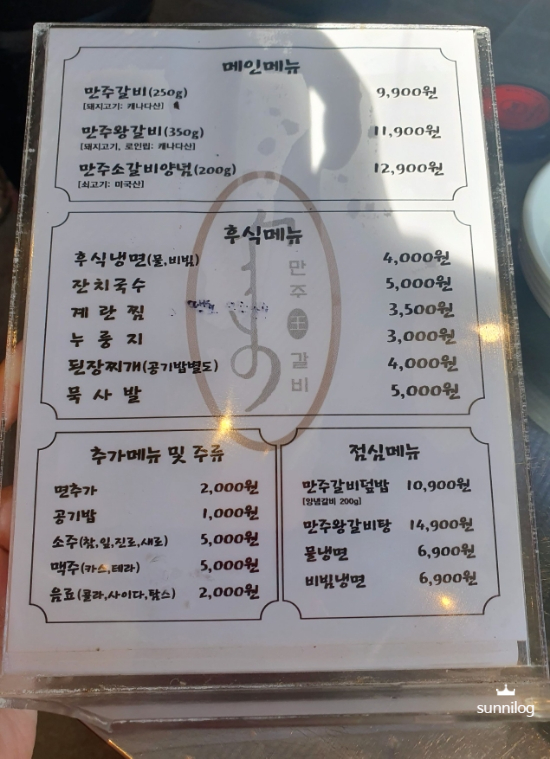 메인메뉴
만주갈비(250g) 9,900원
[돼지고기: 캐나다산]
만주왕갈비(350g) 11,900원
[돼지고기, 로인립: 캐나다산]
만주소갈비양념(200g) 12,900원
[쇠고기: 미국산]
후식메뉴
후식냉면(물,비빔) 4,000원
잔치국수 5,000원
계란찜 3,500원
누룽지 3,000원
된장찌개(공기밥별도) 4,000원
묵사발 5,000원
만주
王
갈비
추가메뉴 및 주류
면추가 2,000원
공기밥 1,000원
소주(참,잎,진로,새로) 5,000원
맥주(카스,테라) 5,000원
음료(콜라,사이다,탐스) 2,000원
점심메뉴
만주갈비덮밥 10,900원
[양념갈비 200g]
만주왕갈비탕 14,900원
물냉면 6,900원
비빔냉면 6,900원
sunnilog